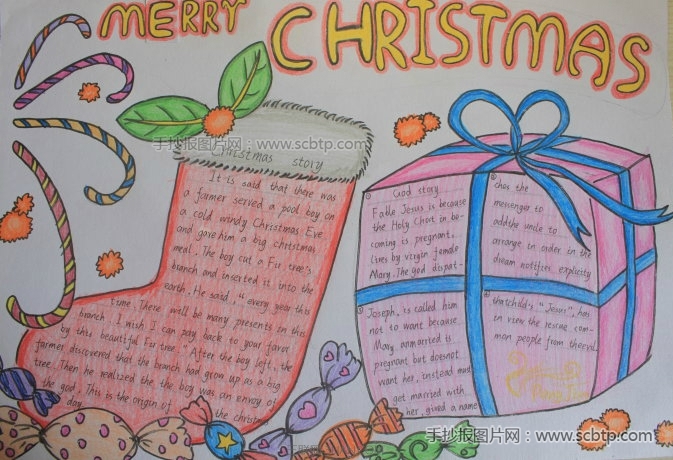 MERRY CHRISTMAS
手抄报图片网：www.scbtp.com
Christmas story
It is said that there was
a farmer served a pool boy on
a cold windy Christmas Eve
and gave him a big christmas
meal. The boy cut a Fir tree's
branch and inserted it into the
earth. He said, "every year this
time. There will be many presents in this
branch. I wish I can pay back to your favor
by this beautiful Fir tree." After the boy left, the
farmer discovered that the branch had grow up as a big
tree. Then he realized the the boy was an envoy of
the god. This is the origin of the christmas
day.
God story
Fable Jesus is because
the Holy Chost in be-
coming is pregnant,
lives by virgin female
Mary. The god dispat-
ches the
messenger to
addthe unile to
arrange in order in the
dream notifies explicity
Joseph, is called him
not to want because
Mary unmarried is
pregnant but doesnot
want her, instead must
get married with
her, gived a name
thatchild's "Jesus", has
in view the rescue com-
mon people from theevil.
手抄报图片网：www.scbtp.com